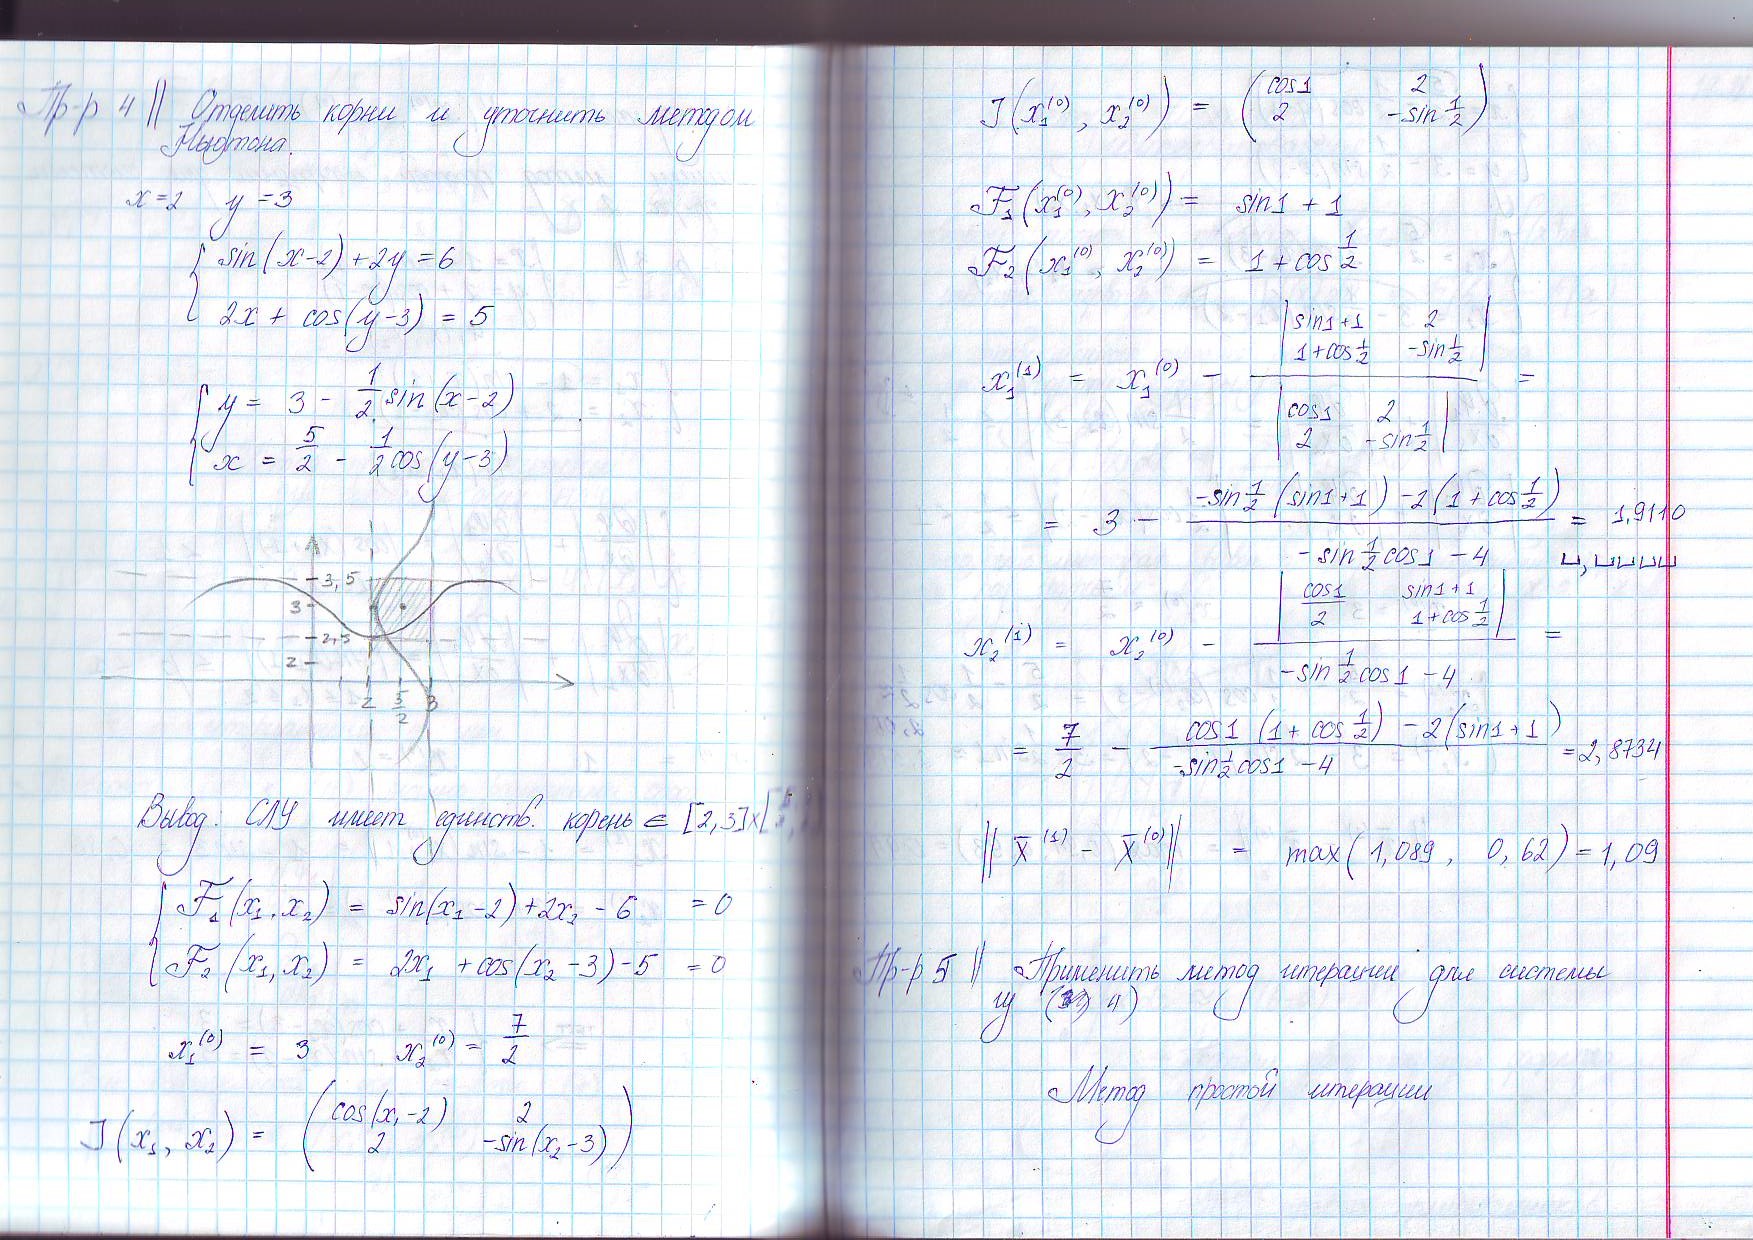 Пр-р 4 || Отделить корни и уточнить методом
Ньютона.
x=2 y=3
{ sin(x-2)+2y=6
2x + cos(y-3) = 5
{ y = 3 - 1/2 sin(x-2)
x = 5/2 - 1/2 cos(y-3)
3,5
3
2,5
2
2 5/2 3
Вывод: СЛУ имеет единств. корень ∈ [2,3]x[
{ F₁(x₁,x₂) = sin(x₁-2)+2x₂-6 =0
F₂(x₁,x₂) = 2x₁+cos(x₂-3)-5 =0
x₁⁽⁰⁾ = 3 x₂⁽⁰⁾ = 7/2
J(x₁, x₂) = ( cos(x₁-2) 2
2 -sin(x₂-3) )
J(x₁⁽⁰⁾, x₂⁽⁰⁾) = ( cos1 2
2 -sin 1/2 )
F₁(x₁⁽⁰⁾, x₂⁽⁰⁾) = sin1 + 1
F₂(x₁⁽⁰⁾, x₂⁽⁰⁾) = 1 + cos 1/2
x₁⁽¹⁾ = x₁⁽⁰⁾ - | sin1+1 2
1+cos 1/2 -sin 1/2 | / | cos1 2
2 -sin 1/2 | =
= 3 - (-sin 1/2 (sin1+1) -2(1+cos 1/2)) / (-sin 1/2 cos1 -4) = 1,9110
x₂⁽¹⁾ = x₂⁽⁰⁾ - | cos1 sin1+1
2 1+cos 1/2 | / (-sin 1/2 cos1 -4) =
= 7/2 - (cos1 (1+cos 1/2) -2(sin1+1)) / (-sin 1/2 cos1 -4) = 2,8734
|| X̄⁽¹⁾ - X̄⁽⁰⁾ || = max(1,089, 0,62) = 1,09
Пр-р 5 || Применить метод итерации для системы
4)
Метод простой итерации